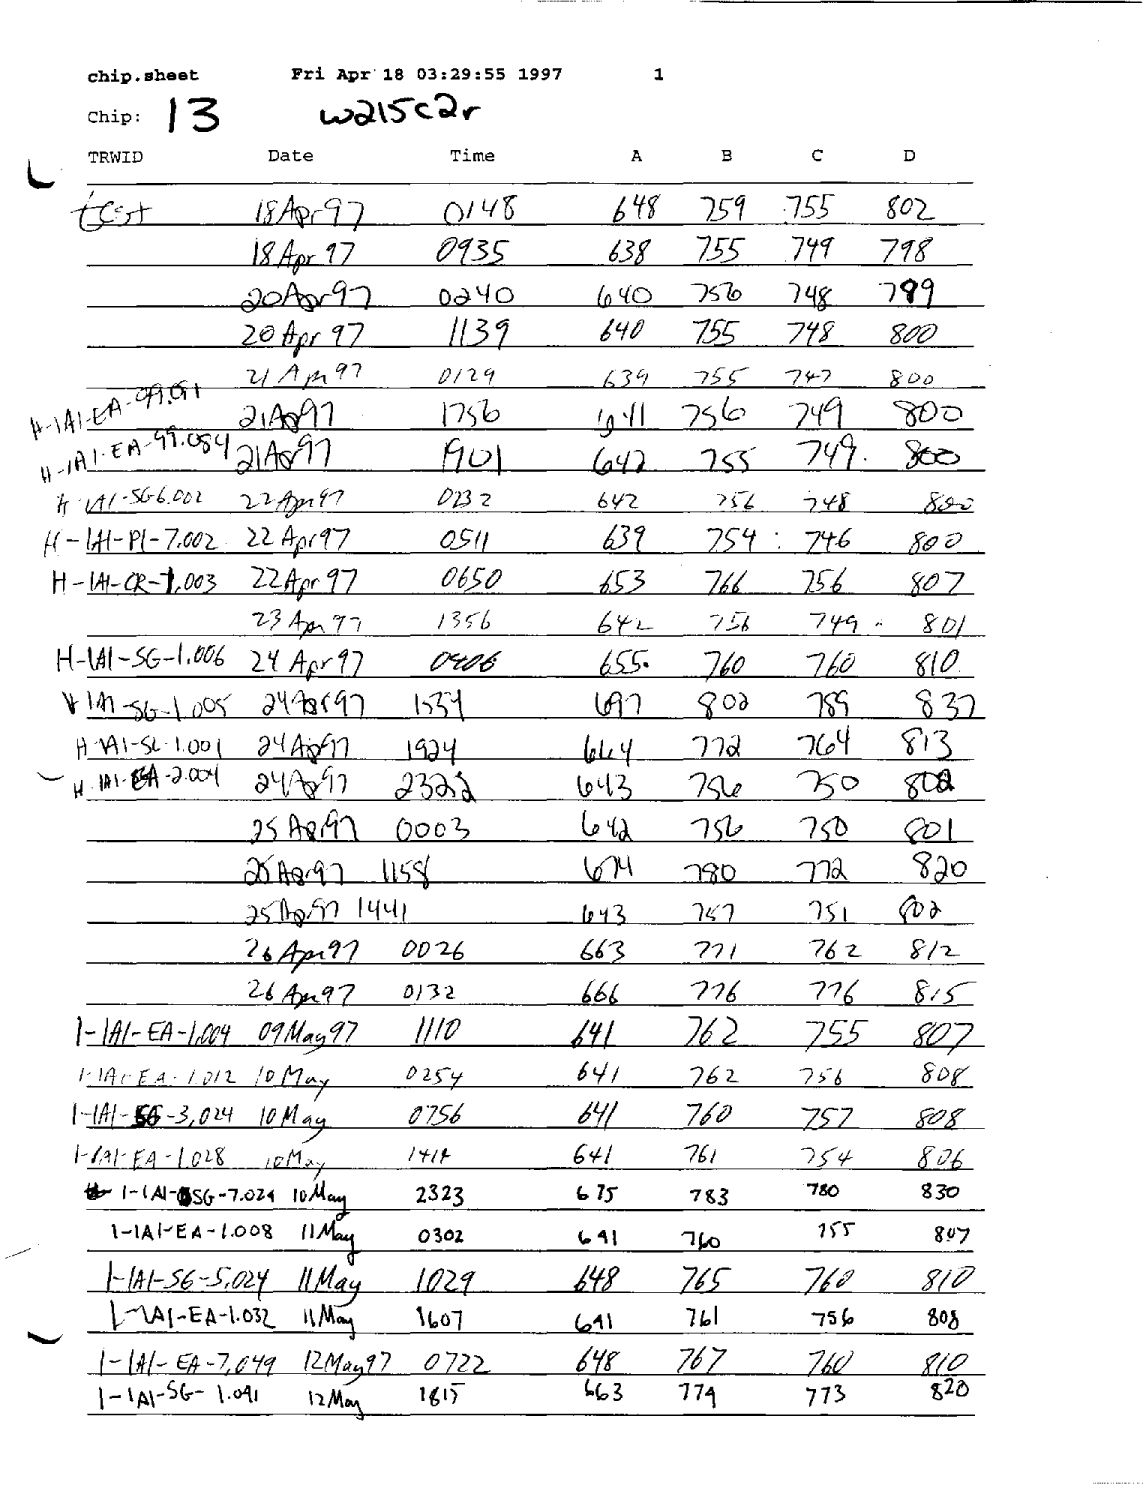 chip.sheet Fri Apr 18 03:29:55 1997 1
Chip: 13 w215c2r
TRWID Date Time A B C D
test 18Apr97 0148 648 759 755 802
18 Apr 97 0935 638 755 749 798
20Apr97 0240 640 756 748 799
20 Apr 97 1139 640 755 748 800
21 Apr 97 0129 639 755 747 800
H-1A1-EA- 21Apr97 1756 641 756 749 800
H-1A1-EA-99.084 21Apr97 1901 642 755 749. 800
H-1A1-SG-6.002 22Apr97 0232 642 756 748 800
H-1A1-PI-7.002 22 Apr97 0511 639 754 746 800
H-1A1-CR-7.003 22Apr 97 0650 653 766 756 807
23 Apr 97 1356 642 756 749 801
H-1A1-SG-1.006 24 Apr97 0406 655. 760 760 810.
H 1A1-SG-1.005 24Apr97 1534 697 802 789 837
H-1A1-SC-1.001 24Apr97 1924 664 772 764 813
H-1A1-EA-2.004 24Apr97 2322 643 756 750 802
25 Apr97 0003 642 756 750 801
25Apr97 1158 674 780 772 820
25Apr97 1441 643 757 751 802
26Apr97 0026 663 771 762 812
26 Apr97 0132 666 776 776 815
1-1A1-EA-1.004 09May97 1110 641 762 755 807
1-1A1-EA-1.012 10May 0254 641 762 756 808
1-1A1-SG-3.024 10May 0756 641 760 757 808
1-1A1-EA-1.028 10May 1414 641 761 754 806
1-1A1-SG-7.024 10May 2323 675 783 780 830
1-1A1-EA-1.008 11May 0302 641 760 755 807
1-1A1-SG-5.024 11May 1029 648 765 760 810
1-1A1-EA-1.032 11May 1607 641 761 756 808
1-1A1-EA-7.049 12May97 0722 648 767 760 810
1-1A1-SG-1.041 12May 1815 663 774 773 820